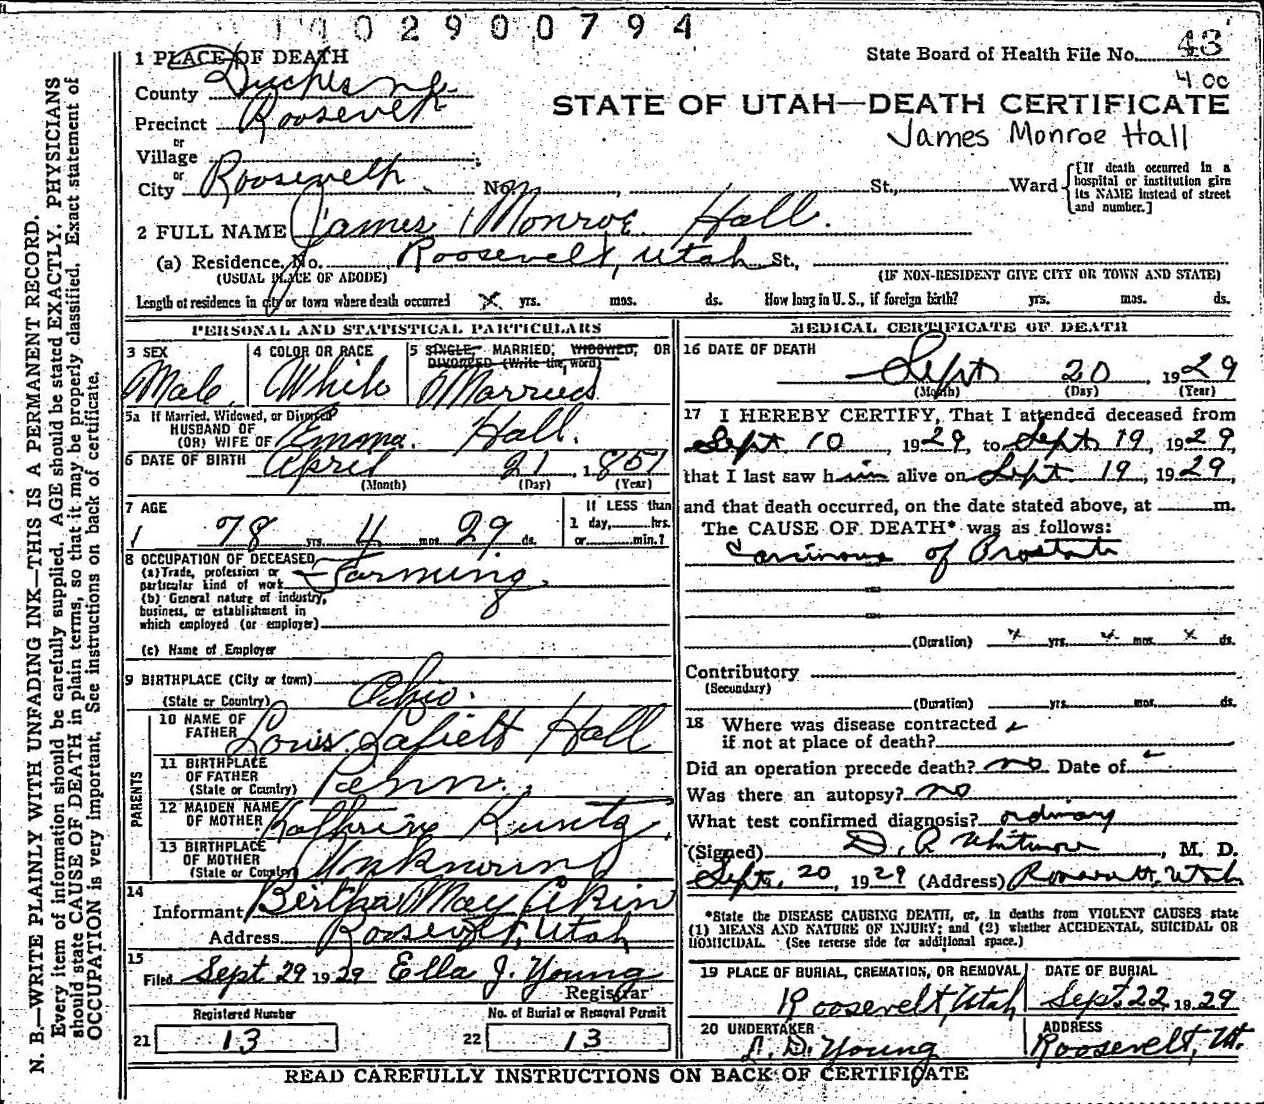 1 1 0 2 9 0 0 7 9 4
1 PLACE OF DEATH
State Board of Health File No. 43
4 00
County Duchesne
STATE OF UTAH—DEATH CERTIFICATE
Precinct Roosevelt
James Monroe Hall
or
Village
or
City Roosevelt No. St., Ward [If death occurred in a hospital or institution give its NAME instead of street and number.]
2 FULL NAME James Monroe Hall.
(a) Residence, No. Roosevelt, Utah St.,
(USUAL PLACE OF ABODE) (IF NON-RESIDENT GIVE CITY OR TOWN AND STATE)
Length of residence in city or town where death occurred X yrs. mos. ds. How long in U. S., if foreign birth? yrs. mos. ds.
PERSONAL AND STATISTICAL PARTICULARS
3 SEX
Male.
4 COLOR OR RACE
White
5 SINGLE, MARRIED, WIDOWED, OR
DIVORCED (Write the word)
Married
5a If Married, Widowed, or Divorced
HUSBAND OF
(OR) WIFE OF Emma. Hall.
6 DATE OF BIRTH April 21, 1851
(Month) (Day) (Year)
7 AGE
78 yrs. 4 mos. 29 ds.
If LESS than
1 day, hrs.
or min.?
8 OCCUPATION OF DECEASED
(a) Trade, profession or
particular kind of work Farming.
(b) General nature of industry,
business, or establishment in
which employed (or employer)
(c) Name of Employer
9 BIRTHPLACE (City or town)
(State or Country) Ohio.
PARENTS
10 NAME OF
FATHER Louis Lafield Hall
11 BIRTHPLACE
OF FATHER
(State or Country) Penn.
12 MAIDEN NAME
OF MOTHER Kathrine Kuntz
13 BIRTHPLACE
OF MOTHER
(State or Country) Unknown
14
Informant Bertha May Akin
Address Roosevelt, Utah
15
Filed Sept 29 1929 Ella J. Young
Registrar
Registered Number
21 13
No. of Burial or Removal Permit
22 13
MEDICAL CERTIFICATE OF DEATH
16 DATE OF DEATH
Sept 20, 1929
(Month) (Day) (Year)
17 I HEREBY CERTIFY, That I attended deceased from
Sept 10 1929, to Sept 19, 1929,
that I last saw him alive on Sept 19, 1929,
and that death occurred, on the date stated above, at m.
The CAUSE OF DEATH* was as follows:
Carcinoma of Prostate
(Duration) x yrs. x mos. x ds.
Contributory
(Secondary)
(Duration) yrs. mos. ds.
18 Where was disease contracted
if not at place of death?
Did an operation precede death? no Date of
Was there an autopsy? no
What test confirmed diagnosis? ordinary
(Signed) D. R. Whitmore, M. D.
Sept. 20, 1929 (Address) Roosevelt, Utah
*State the DISEASE CAUSING DEATH, or, in deaths from VIOLENT CAUSES state
(1) MEANS AND NATURE OF INJURY; and (2) whether ACCIDENTAL, SUICIDAL OR
HOMICIDAL. (See reverse side for additional space.)
19 PLACE OF BURIAL, CREMATION, OR REMOVAL
Roosevelt, Utah
DATE OF BURIAL
Sept. 22 1929
20 UNDERTAKER
D. Young
ADDRESS
Roosevelt, Ut.
READ CAREFULLY INSTRUCTIONS ON BACK OF CERTIFICATE
N. B.—WRITE PLAINLY WITH UNFADING INK—THIS IS A PERMANENT RECORD.
Every item of information should be carefully supplied. AGE should be stated EXACTLY. PHYSICIANS
should state CAUSE OF DEATH in plain terms, so that it may be properly classified. Exact statement of
OCCUPATION is very important. See instructions on back of certificate.